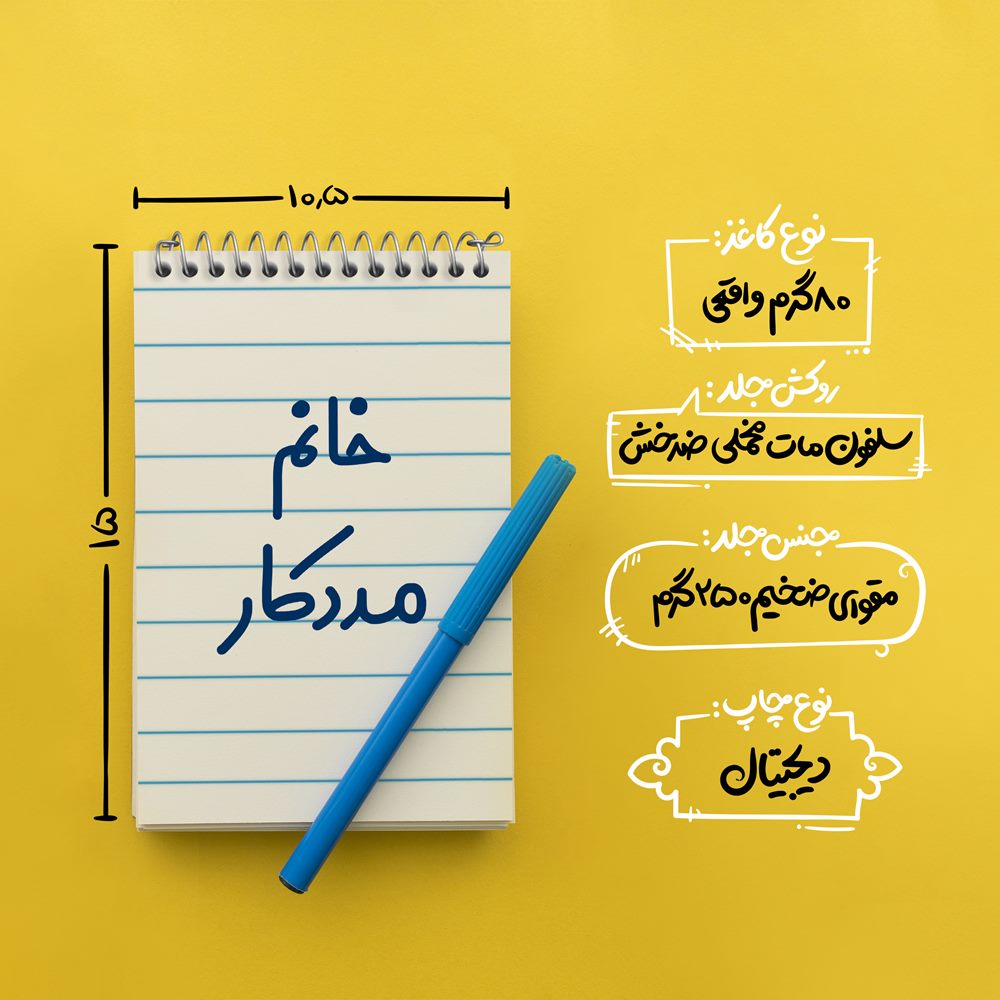 ۱۰٫۵
۱۵
خانم
مددکار
نوع کاغذ:
۸۰گرم واقعی
روکش جلد:
سلفون مات مخملی ضدخش
جنس جلد:
مقوای ضخیم ۲۵۰گرم
نوع چاپ:
دیجیتال